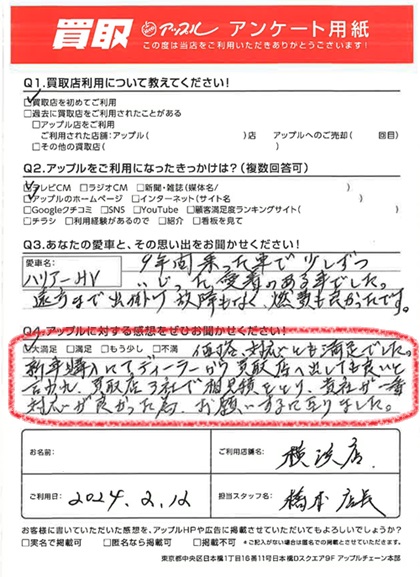 買取 アップル アンケート用紙
この度は当店をご利用いただきありがとうございます!
Q1.買取店利用について教えてください!
☑買取店を初めてご利用
□過去に買取店をご利用されたことがある
□アップル店をご利用
ご利用された店舗:アップル( )店 アップルへのご売却( 回目)
□その他の買取店( )
Q2.アップルをご利用になったきっかけは?(複数回答可)
☑テレビCM □ラジオCM □新聞・雑誌(媒体名/ )
☑アップルのホームページ □インターネット(サイト名 )
□Googleクチコミ □SNS □YouTube □顧客満足度ランキングサイト( )
□チラシ □利用経験があるので □紹介 □看板を見て
Q3.あなたの愛車と、その思い出をお聞かせください!
愛車名:
ハリアーHV
9年間乗った車で少しずつ
いじった愛着のある車でした。
遠方まで出掛け故障もなく、燃費も良かったです。
Q4.アップルに対する感想をぜひお聞かせください!
☑大満足 □満足 □もう少し □不満 価格、対応とも満足でした。
新車購入にてディーラーから買取店へ出しても良いと
言われ、買取店3社で相見積をとり、貴社が一番
対応が良かった為、お願いするに至りました。
お名前:
ご利用店舗名:
横浜店
ご利用日:
2024.2.12
担当スタッフ名:
橋本 店長
お客様に書いていただいた感想を、アップルHPや広告に掲載させていただいてもよろしいでしょうか?
□実名で掲載可 □匿名なら掲載可 □掲載不可 *ご記入がない場合は匿名での掲載とさせていただきます。
東京都中央区日本橋1丁目16番11号日本橋Dスクエア9F アップルチェーン本部